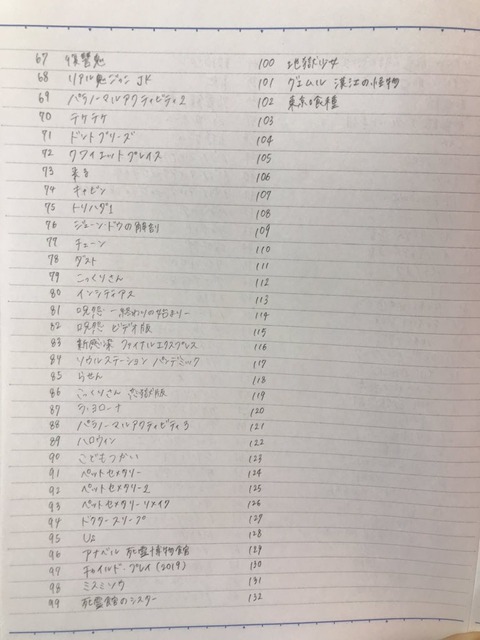 67 復讐鬼
68 リアル鬼ごっこ JK
69 パラノーマルアクティビティ2
70 テケテケ
71 ドントブリーズ
72 クワイエットプレイス
73 来る
74 キャビン
75 トリハダ1
76 ジェーン・ドウの解剖
77 チェーン
78 ダスト
79 こっくりさん
80 インシディアス
81 呪怨 ー終わりの始まりー
82 呪怨 ビデオ版
83 新感染 ファイナルエクスプレス
84 ソウルステーション パンデミック
85 らせん
86 こっくりさん 恋獄版
87 ラ・ヨローナ
88 パラノーマルアクティビティ3
89 ハロウィン
90 こどもつかい
91 ペットセメタリー
92 ペットセメタリー2
93 ペットセメタリーリメイク
94 ドクタースリープ
95 Us
96 アナベル 死霊博物館
97 チャイルド・プレイ (2019)
98 ミスミソウ
99 死霊館のシスター
100 地獄少女
101 グエムル 漢江の怪物
102 東京喰種
103
104
105
106
107
108
109
110
111
112
113
114
115
116
117
118
119
120
121
122
123
124
125
126
127
128
129
130
131
132